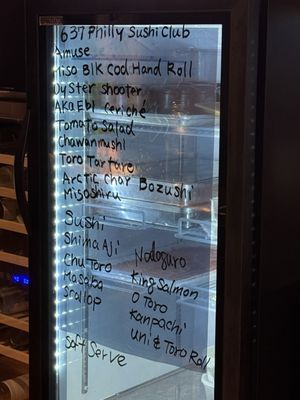 1637 Philly Sushi Club
Amuse
Miso Blk Cod Hand Roll
Oyster shooter
Aka Ebi Ceviché
Tomato Salad
Chawanmushi
Toro Tartare
Arctic Char Bozushi
Misoshiru
Sushi
Shima Aji
Chu Toro
Masaba
Scallop
Nodoguro
King Salmon
O Toro
Kanpachi
Uni & Toro Roll
Soft Serve